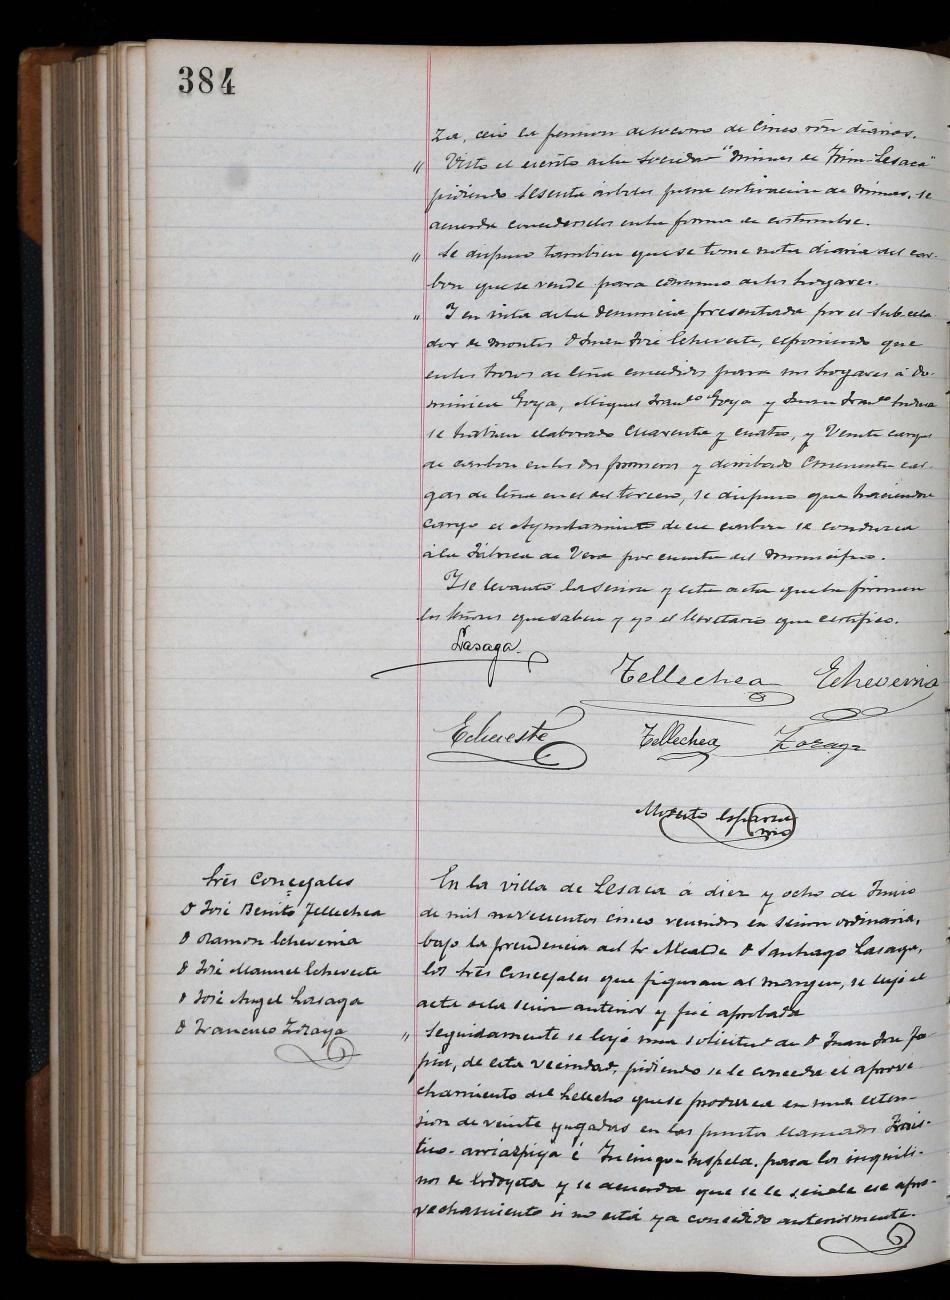 384
za, con la pension de socorro de cinco rvn diarios.
" Visto el escrito de la Sociedad "Minas de Irun-Lesaca"
pidiendo sesenta árboles para entivacion de minas, se
acuerda concederselos en la forma de costumbre.
" Se dispuso tambien que se tome nota diaria del car-
bon que se vende para consumo de los hogares.
" Y en vista de la denuncia presentada por el Subcela-
dor de montes D Juan José Echeveste, esponiendo que
en los trozos de leña concedidos para sus hogares á Do-
minica Goya, Miguel Franco Goya y Juan Franco
se habian elaborado cuarenta y cuatro, y veinte cargas
de carbon en los dos primeros y derribado cincuenta car-
gas de leña en el del tercero, se dispuso que haciendose
cargo el Ayuntamiento de ese carbon se conduzca
á la Fábrica de Vera por cuenta del municipio.
Y se levantó la sesion y esta acta que la firman
los señores que saben y yo el Secretario que certifico.
Lasaga
Tellechea Echeverria
Echeveste Tellechea Zozaya
Modesto Esparza
Srio
Sres Concejales
D José Benito Tellechea
D Ramon Echeverria
D José Manuel Echeveste
D José Angel Lasaga
D Francisco Zozaya
En la villa de Lesaca á diez y ocho de Junio
de mil novecientos cinco reunidos en sesion ordinaria,
bajo la presidencia del Sr Alcalde D Santiago Lasaga,
los sres Concejales que figuran al margen, se leyó el
acta de la sesion anterior y fué aprobada
" Seguidamente se leyó una solicitud de D Juan José
de esta vecindad, pidiendo se le conceda el aprove
chamiento del helecho que se produzca en una esten-
sion de veinte yugadas en los puntos llamados
é para los inquili-
nos de y se acuerda que se le señale ese apro-
vechamiento si no está ya concedido anteriormente.